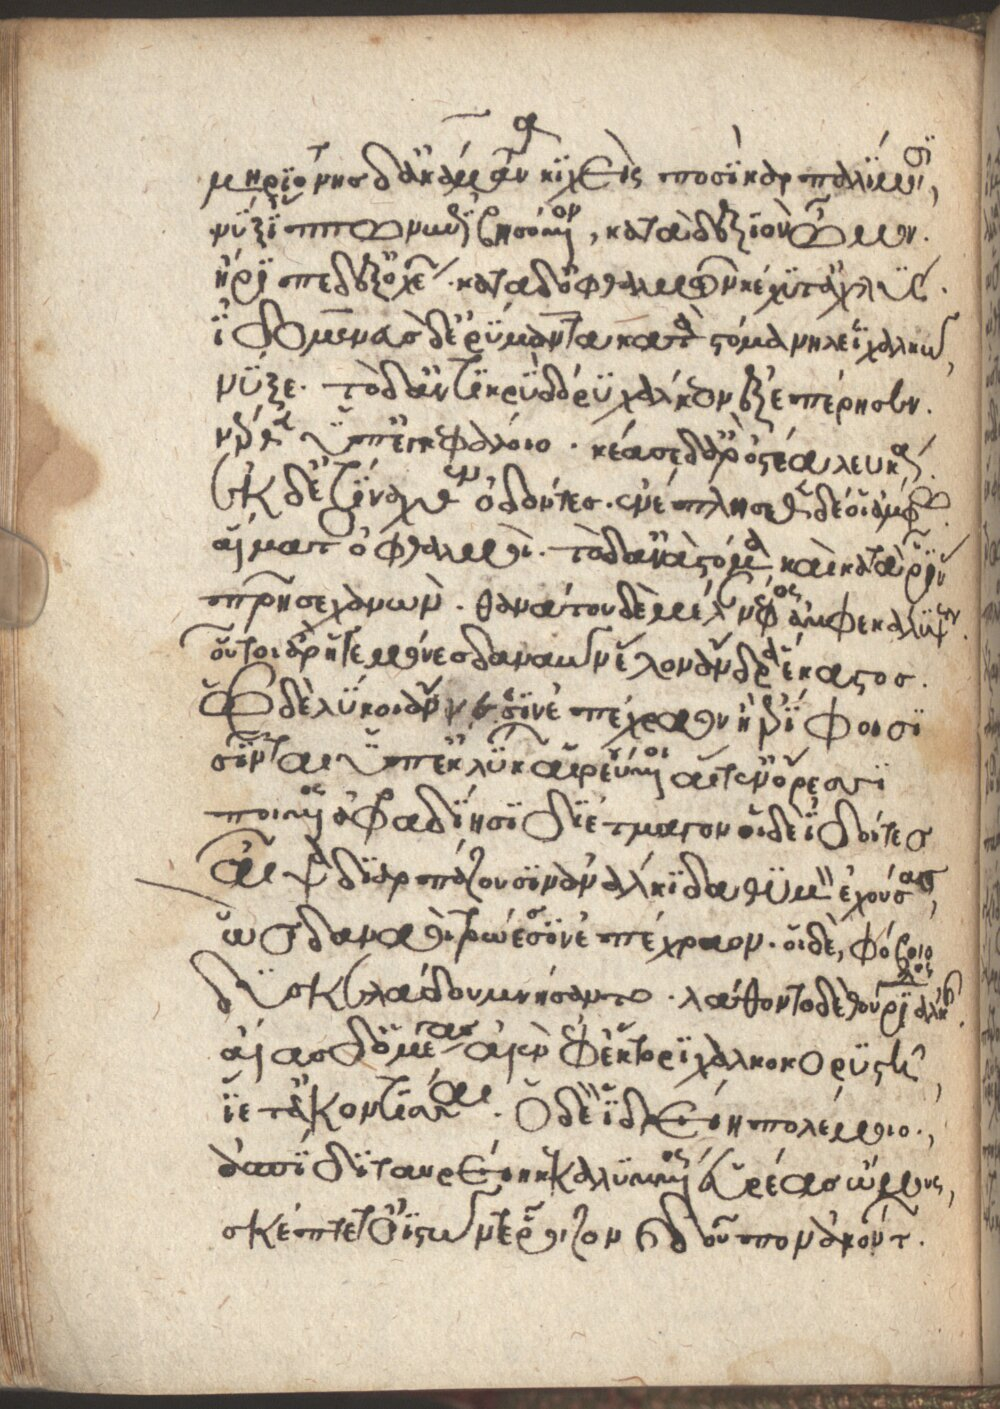 μηριόνης δ' ἀκάμαντα κιχεὶς ποσὶ καρπαλίμοισι,
νύξ' ἵππων ἐπιβησόμενον, κατὰ δεξιὸν ὦμον.
ἤριπε δ' ἐξ ὀχέων. κατὰ δ' ὀφθαλμῶν κέχυτ' ἀχλύς.
ἰδομενεὺς δ' ἐρύμαντα κατὰ στόμα νηλέϊ χαλκῶ,
νύξε. τὸ δ' ἀντικρὺ δόρυ χάλκεον ἐξεπέρησεν.
νέρθεν ὑπ' ἐγκεφάλοιο. κέασσε δ' ἄρ' ὀστέα λευκά.
ἐκ δὲ τίναχθεν ὀδόντες. ἐνέπλησθεν δέ οἱ ἄμφω
αἵματος ὀφθαλμοί. τὸ δ' ἀνὰ στόμα καὶ κατὰ ῥῖνας
πρῆσε χανών. θανάτου δὲ μέλαν νέφος ἀμφεκάλυψεν.
οὗτοι ἄρ' ἡγεμόνες δαναῶν ἕλον ἄνδρα ἕκαστος.
ὡς δὲ λύκοι ἄρνεσσιν ἐπέχραον ἢ ἐρίφοισι
σίνται ὑπ' ἐκ μήλων αἱρεύμενοι αἵτ' ἐν ὄρεσσι
ποιμένος ἀφραδίῃσι διέτμαγον οἱ δὲ ἰδόντες
αἶψα διαρπάζουσιν ἀνάλκιδα θυμὸν ἐχούσας,
ὣς δαναοὶ τρώεσσιν ἐπέχραον. οἱ δὲ, φόβοιο
δυσκελάδου μνήσαντο. λάθοντο δὲ θούριδος ἀλκῆς.
αἴας δ' ὁ μέγας αἰὲν ἐφ' ἕκτορι χαλκοκορυστῇ,
ἵετ' ἀκοντίσσαι. ὁ δὲ ἰδρείῃ πολέμοιο,
ἀσπίδι ταυρείῃ κεκαλυμμένος εὐρέας ὤμους,
σκέπτετ' ὀϊστῶν τε ῥοῖζον καὶ δοῦπον ἀκόντων.